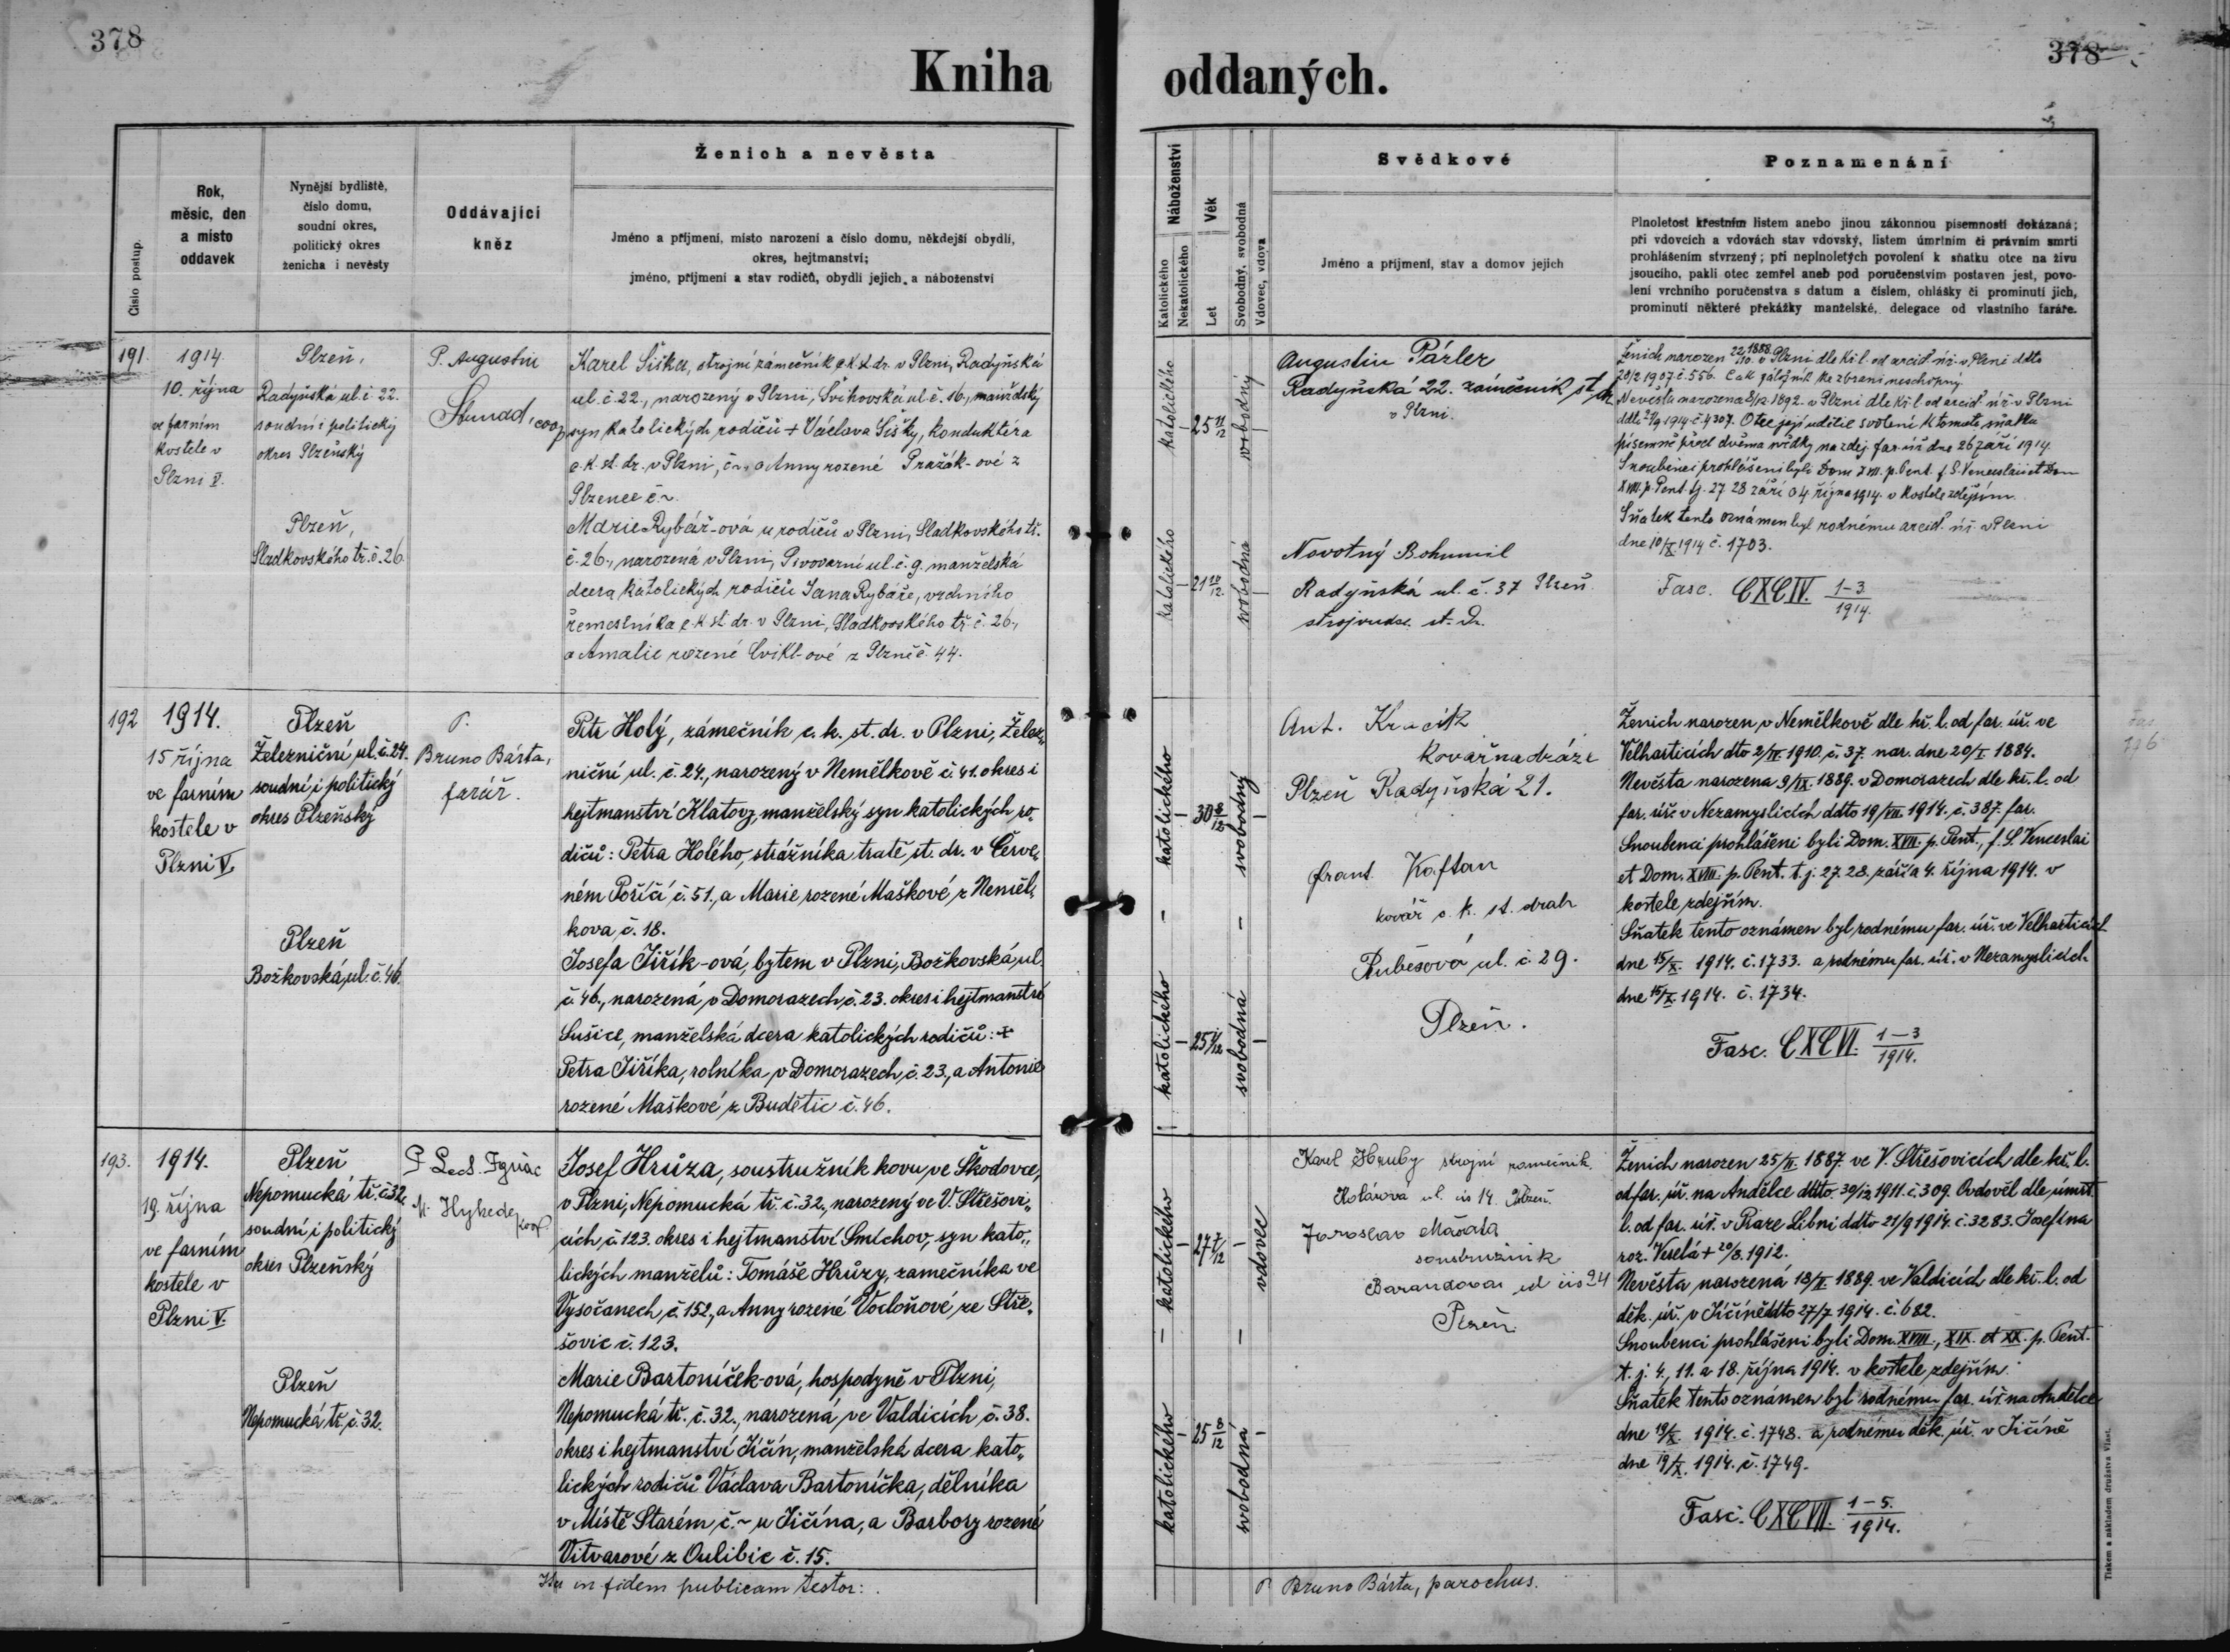 378
378
Kniha oddaných.
Číslo postup.
Rok,
měsíc, den
a místo
oddavek
Nynější bydliště,
číslo domu,
soudní okres,
politický okres
ženicha i nevěsty
Oddávající
kněz
Ženich a nevěsta
Jméno a příjmení, místo narození a číslo domu, někdejší obydlí,
okres, hejtmanství;
jméno, příjmení a stav rodičů, obydlí jejich a náboženství
Náboženství
Katolického
Nekatolického
Věk
Let
Svobodný, svobodná
Vdovec, vdova
Svědkové
Jméno a příjmení, stav a domov jejich
Poznamenání
Plnoletost křestním listem anebo jinou zákonnou písemností dokázaná;
při vdovcích a vdovách stav vdovský, listem úmrtním či právním smrti
prohlášením stvrzený; při neplnoletých povolení k sňatku otce na živu
jsoucího, pakli otec zemřel aneb pod poručenstvím postaven jest, povo-
lení vrchního poručenstva s datum a číslem, ohlášky či prominutí jich,
prominutí některé překážky manželské, delegace od vlastního faráře.
191.
1914
10. října
ve farním
kostele v
Plzni V.
Plzeň,
Radyňská ul. č. 22.
soudní i politický
okres Plzeňský
Plzeň,
Sladkovského tř. č. 26.
P. Augustin
coop.
Karel Šiška, strojní zámečník c. k. st. dr. v Plzni, Radyňská
ul. č. 22., narozený v Plzni, Švihovská ul. č. 16., manželský
syn katolických rodičů + Václava Šišky, konduktéra
c. k. st. dr. v Plzni, č. ~ a Anny rozené Pražák-ové z
Plzence č. ~
Marie Rybář-ová u rodičů v Plzni, Sladkovského tř.
č. 26., narozená v Plzni, Pivovarní ul. č. 9. manželská
dcera katolických rodičů Jana Rybáře, vrchního
řemeslníka c. k. st. dr. v Plzni, Sladkovského tř. č. 26.,
a Amalie rozené Cvikl-ové z Plzně č. 44.
katolického
25 11/12
svobodný
katolického
21 10/12
svobodná
Augustin Párler
Radyňská 22. zámečník st. dr.
v Plzni.
Novotný Bohumil
Radyňská ul. č. 37 Plzeň
strojvudc. st. Dr.
Ženich narozen 22/10. 1888 v Plzni dle kř. l. od arcid. úř. v Plzni ddto
20/2 1907 č. 556. Cak záložník ke zbrani neschopný
Nevěsta narozena 8/12. 1892. v Plzni dle kř. l. od arcid. úř. v Plzni
ddto 2/9 1914 č. 4307. Otec její udělil svolení k tomuto sňatku
písemně před dvěma svědky na zdej. far. úř. dne 26 září 1914.
Snoubenci prohlášeni byli Dom XVII. p. Pent. f. S. Venceslai et Dom
XVIII. p. Pent. tj. 27 28 září a 4 října 1914. v kostele zdejším.
Sňatek tento oznámen byl rodnému arcid. úř. v Plzni
dne 10/X. 1914 č. 1703.
Fasc. CXCIV. 1-3/1914.
192
1914.
15 října
ve farním
kostele v
Plzni V.
Plzeň
Železniční ul. č. 24.
soudní i politický
okres Plzeňský
Plzeň
Božkovská ul. č. 46.
P.
Bruno Bárta,
farář.
Petr Holý, zámečník c. k. st. dr. v Plzni, Želez„
niční ul. č. 24., narozený v Nemělkově č. 41. okres i
hejtmanství Klatovy, manželský syn katolických ro„
dičů: Petra Holého, strážníka tratě st. dr. v Červe„
ném Poříčí č. 51., a Marie rozené Maškové z Neměl„
kova č. 18.
Josefa Jiřík-ová, bytem v Plzni, Božkovská ul.
č. 46., narozená v Domorazech č. 23. okres i hejtmanství
Sušice, manželská dcera katolických rodičů: +
Petra Jiříka, rolníka v Domorazech, č. 23., a Antonie
rozené Maškové z Budětic č. 46.
katolického
30 8/12
svobodný
katolického
25 1/12
svobodná
Ant. Kracík
Kovář na dráze
Plzeň Radyňská 21.
Frant. Kaftan
kovář c. k. st. drah
Rubešova ul. č. 29.
Plzeň.
Ženich narozen v Nemělkově dle kř. l. od far. úř. ve
Velharticích dto 2/IV. 1910. č. 37. nar. dne 20/I. 1884.
Nevěsta narozena 9/IX. 1889. v Domorazech dle kř. l. od
far. úř. v Nezamyslicích ddto 19/VII. 1914. č. 387. far.
Snoubenci prohlášeni byli Dom. XVII. p. Pent., f. S. Venceslai
et Dom. XVIII. p. Pent. t. j. 27. 28. září a 4. října 1914. v
kostele zdejším.
Sňatek tento oznámen byl rodnému far. úř. ve Velharticích
dne 15/X. 1914. č. 1733. a rodnému far. úř. v Nezamyslicích
dne 15/X. 1914. č. 1734.
Fasc. CXCVI. 1-3/1914.
193.
1914.
19. října
ve farním
kostele v
Plzni V.
Plzeň
Nepomucká tř. č. 32
soudní i politický
okres Plzeňský
Plzeň
Nepomucká tř. č. 32.
Josef Hrůza, soustružník kovu ve Škodovce,
v Plzni, Nepomucká tř. č. 32., narozený ve V. Střešovi„
cích, č. 123. okres i hejtmanství Smíchov, syn kato„
lických manželů: Tomáše Hrůzy, zámečníka ve
Vysočanech č. 152., a Anny rozené Vodoňové ze Stře„
šovic č. 123.
Marie Bartoníček-ová, hospodyně v Plzni,
Nepomucká tř. č. 32., narozená ve Valdicích č. 38.
okres i hejtmanství Jičín, manželská dcera kato„
lických rodičů Václava Bartoníčka, dělníka
v Místě Starém, č. ~ u Jičína, a Barbory rozené
Vitvarové z Oulibic č. 15.
katolického
27 7/12
vdovec
katolického
25 8/12
svobodná
Karel Hruby strojní zamečnik.
Kolárova ul. čís 14. Plzeň.
Jaroslav
soustružník
ul čís 24
Plzeň.
Ženich narozen 25/II. 1887. ve V. Střešovicích dle kř. l.
od far. úř. na Andělce ddto. 30/12 1911. č. 309. Ovdověl dle úmrt.
l. od far. úř. v Praze Libni ddto 21/9 1914. č. 3283. Josefina
roz. Veselá + 20/8. 1912.
Nevěsta narozená 18/II. 1889. ve Valdicích dle kř. l. od
děk. úř. v Jičíně ddto 27/7 1914. č. 682.
Snoubenci prohlášeni byli Dom. XVIII., XIX. et XX. p. Pent.
t. j. 4., 11. a 18. října 1914. v kostele zdejším.
Sňatek tento oznámen byl rodnému far. úř. na Andělce
dne 19/X. 1914. č. 1748. a rodnému děk. úř. v Jičíně
dne 19/X. 1914. č. 1749.
Fasc. CXCVII. 1-5./1914.
Ita in fidem publicam testor:
P. Bruno Bárta, parochus.
Tiskem a nákladem družstva Vlast.